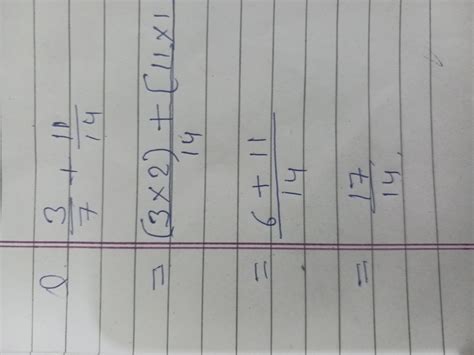 3/7 + 11/14
= (3×2) + (11×1/14
= 6 + 11/14
= 17/14